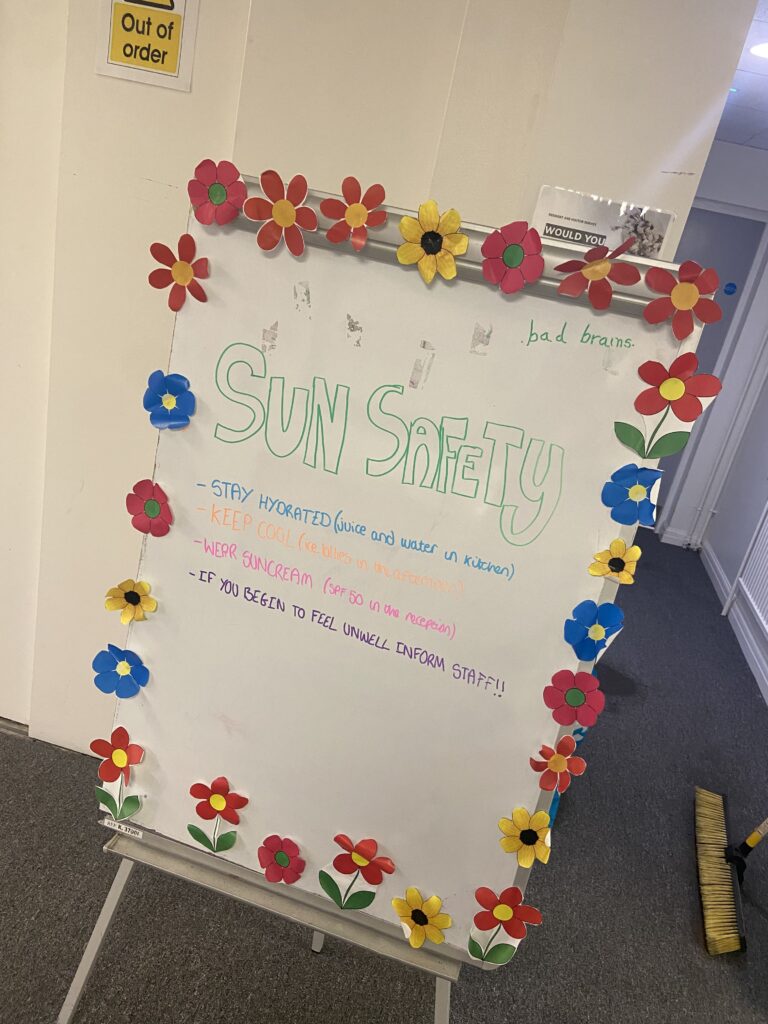 Out of
order
WOULD YOU
bad brains.
SUN SAFETY
- STAY HYDRATED (juice and water in kitchen)
- KEEP COOL (ice lollies in the afternoon)
- WEAR SUNCREAM (SPF 50 in the reception)
- IF YOU BEGIN TO FEEL UNWELL INFORM STAFF!!